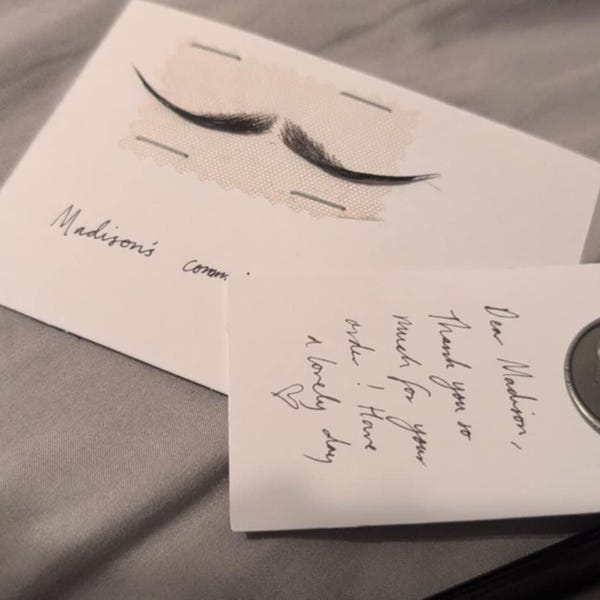 Madison's comm
Dear Madison,
Thank you so
much for your
order! Have
a lovely day